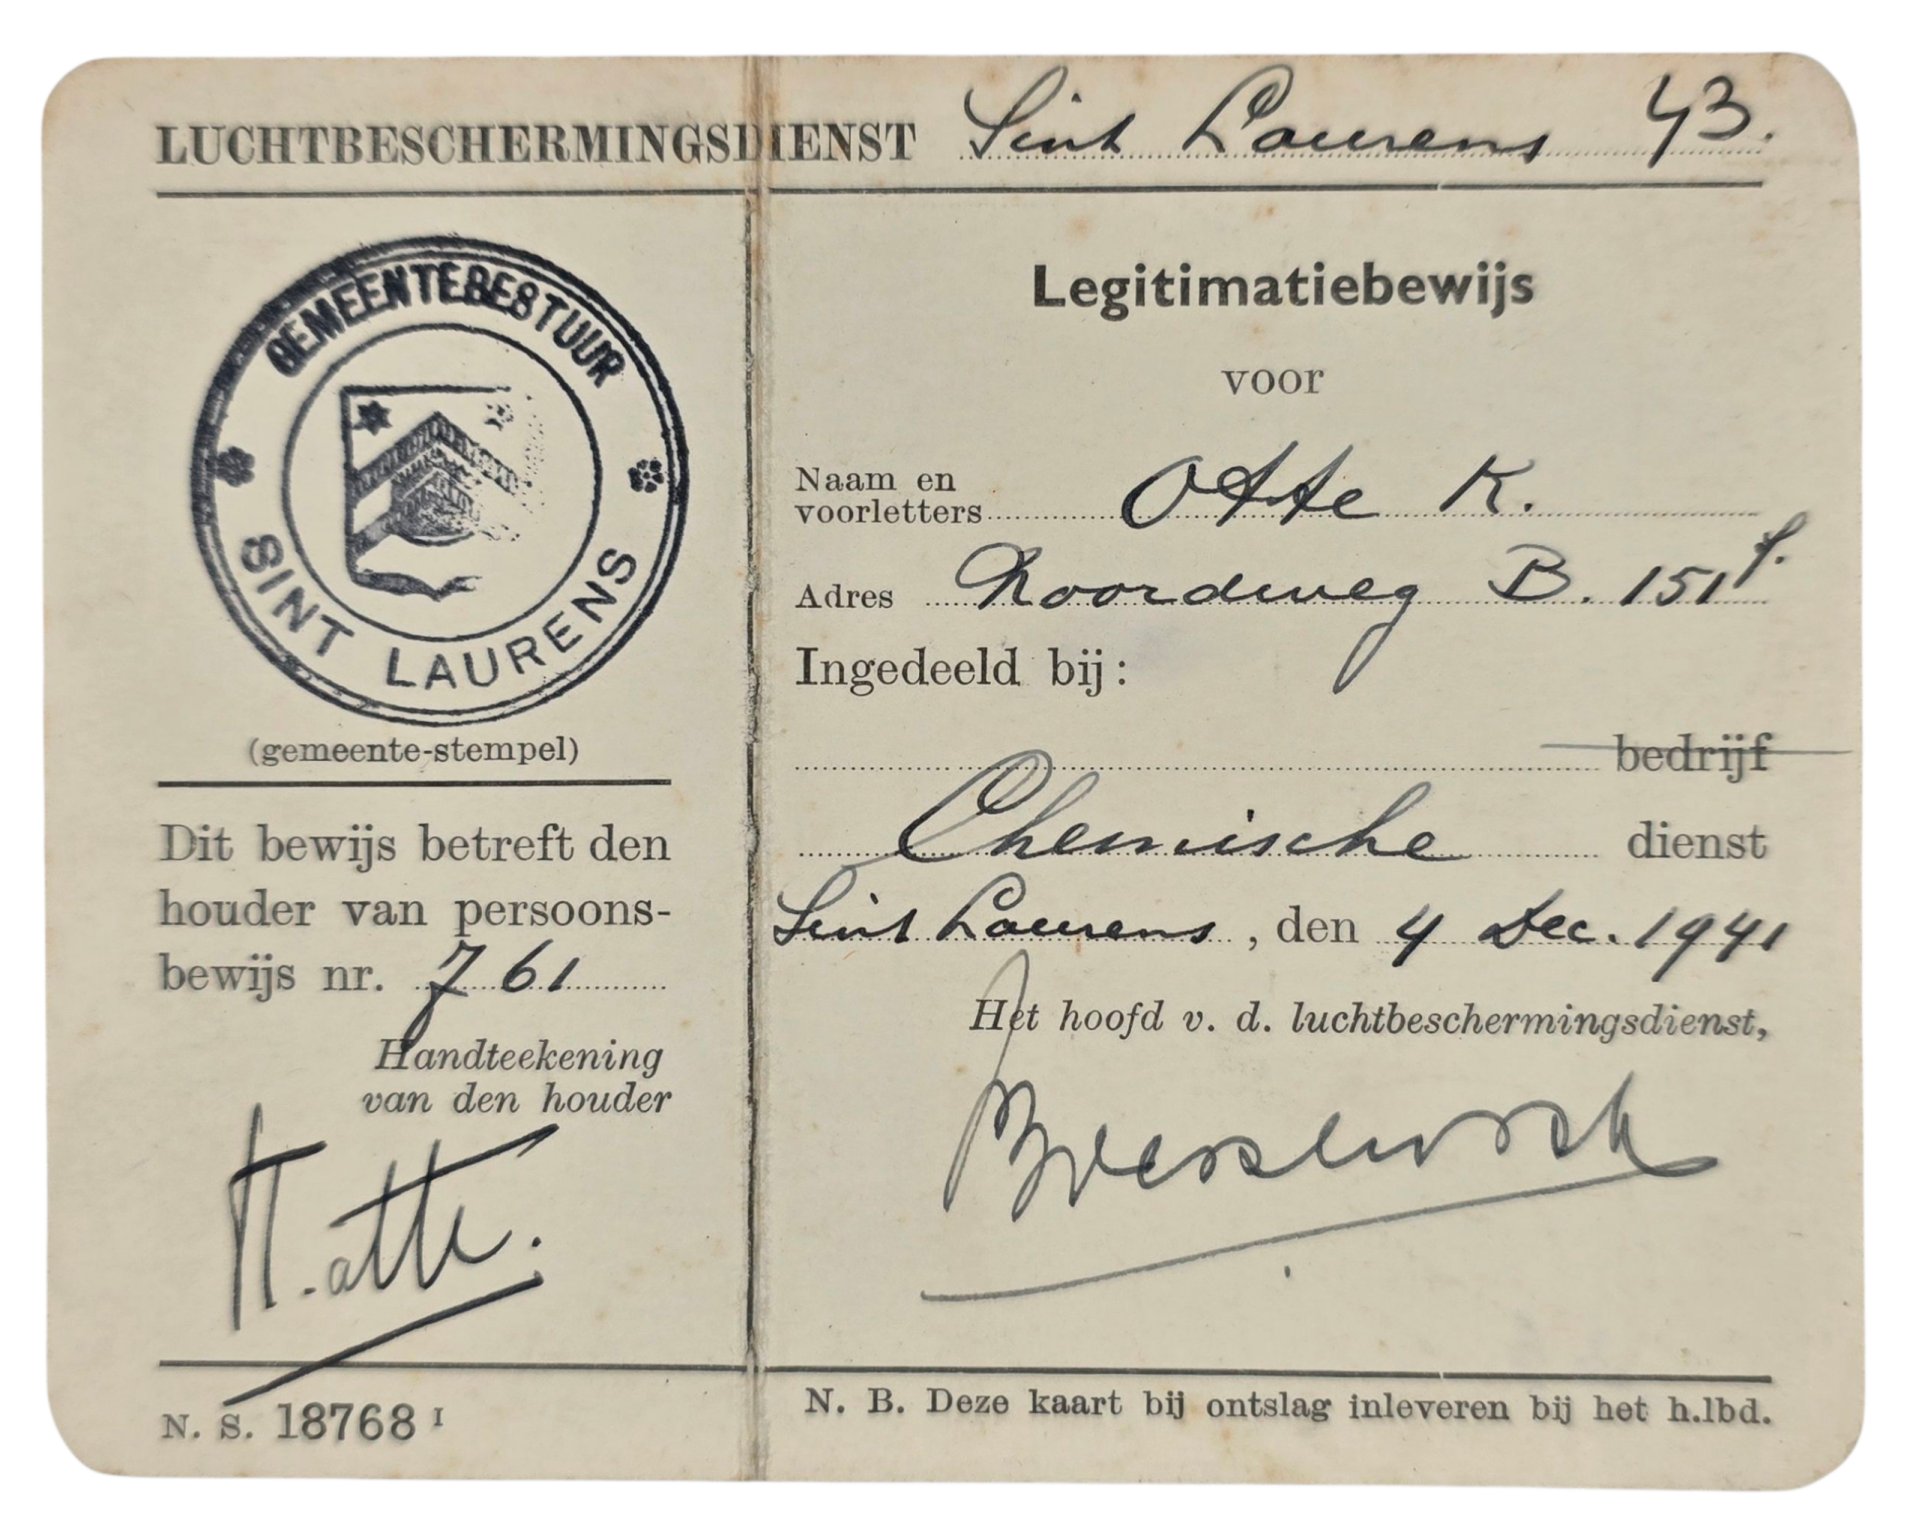 LUCHTBESCHERMINGSDIENST Sint Laurens 43.
GEMEENTEBESTUUR
SINT LAURENS
(gemeente-stempel)
Dit bewijs betreft den
houder van persoons-
bewijs nr. 761
Handteekening
van den houder
K. Otte.
N. S. 18768 I
Legitimatiebewijs
voor
Naam en
voorletters Otte K.
Adres Noordweg B. 151 f.
Ingedeeld bij:
bedrijf
Chemische dienst
Sint Laurens, den 4 Dec. 1941
Het hoofd v. d. luchtbeschermingsdienst,
N. B. Deze kaart bij ontslag inleveren bij het h.lbd.